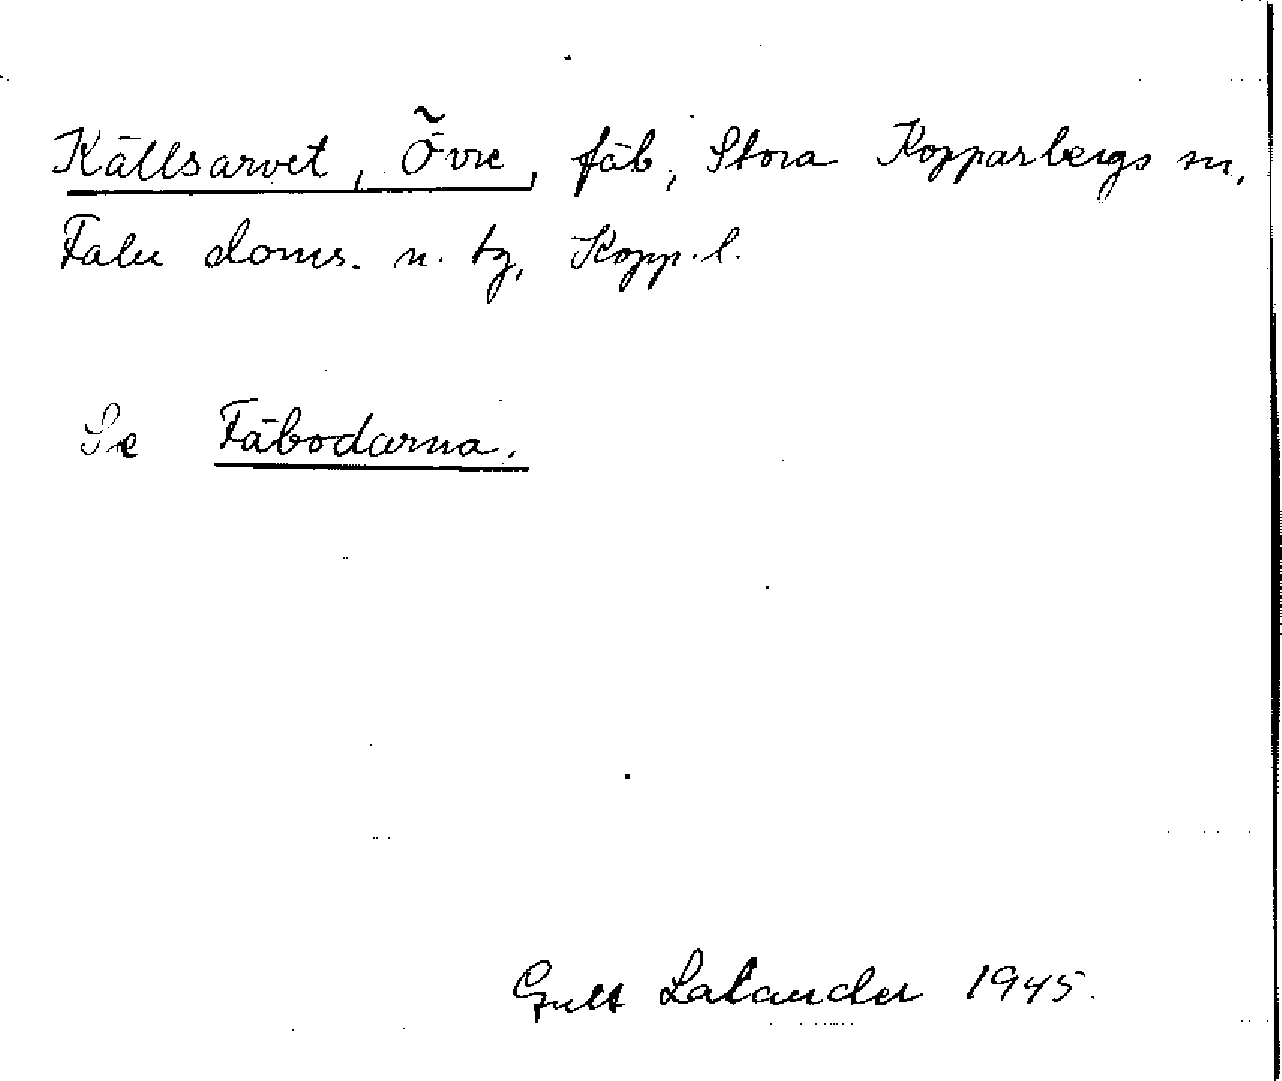 Källsarvet, Övre, fäb, Stora Kopparbergs sn,
Falu doms. n. tg, Kopp. l.
Se Fäbodarna.
Lalander 1945.